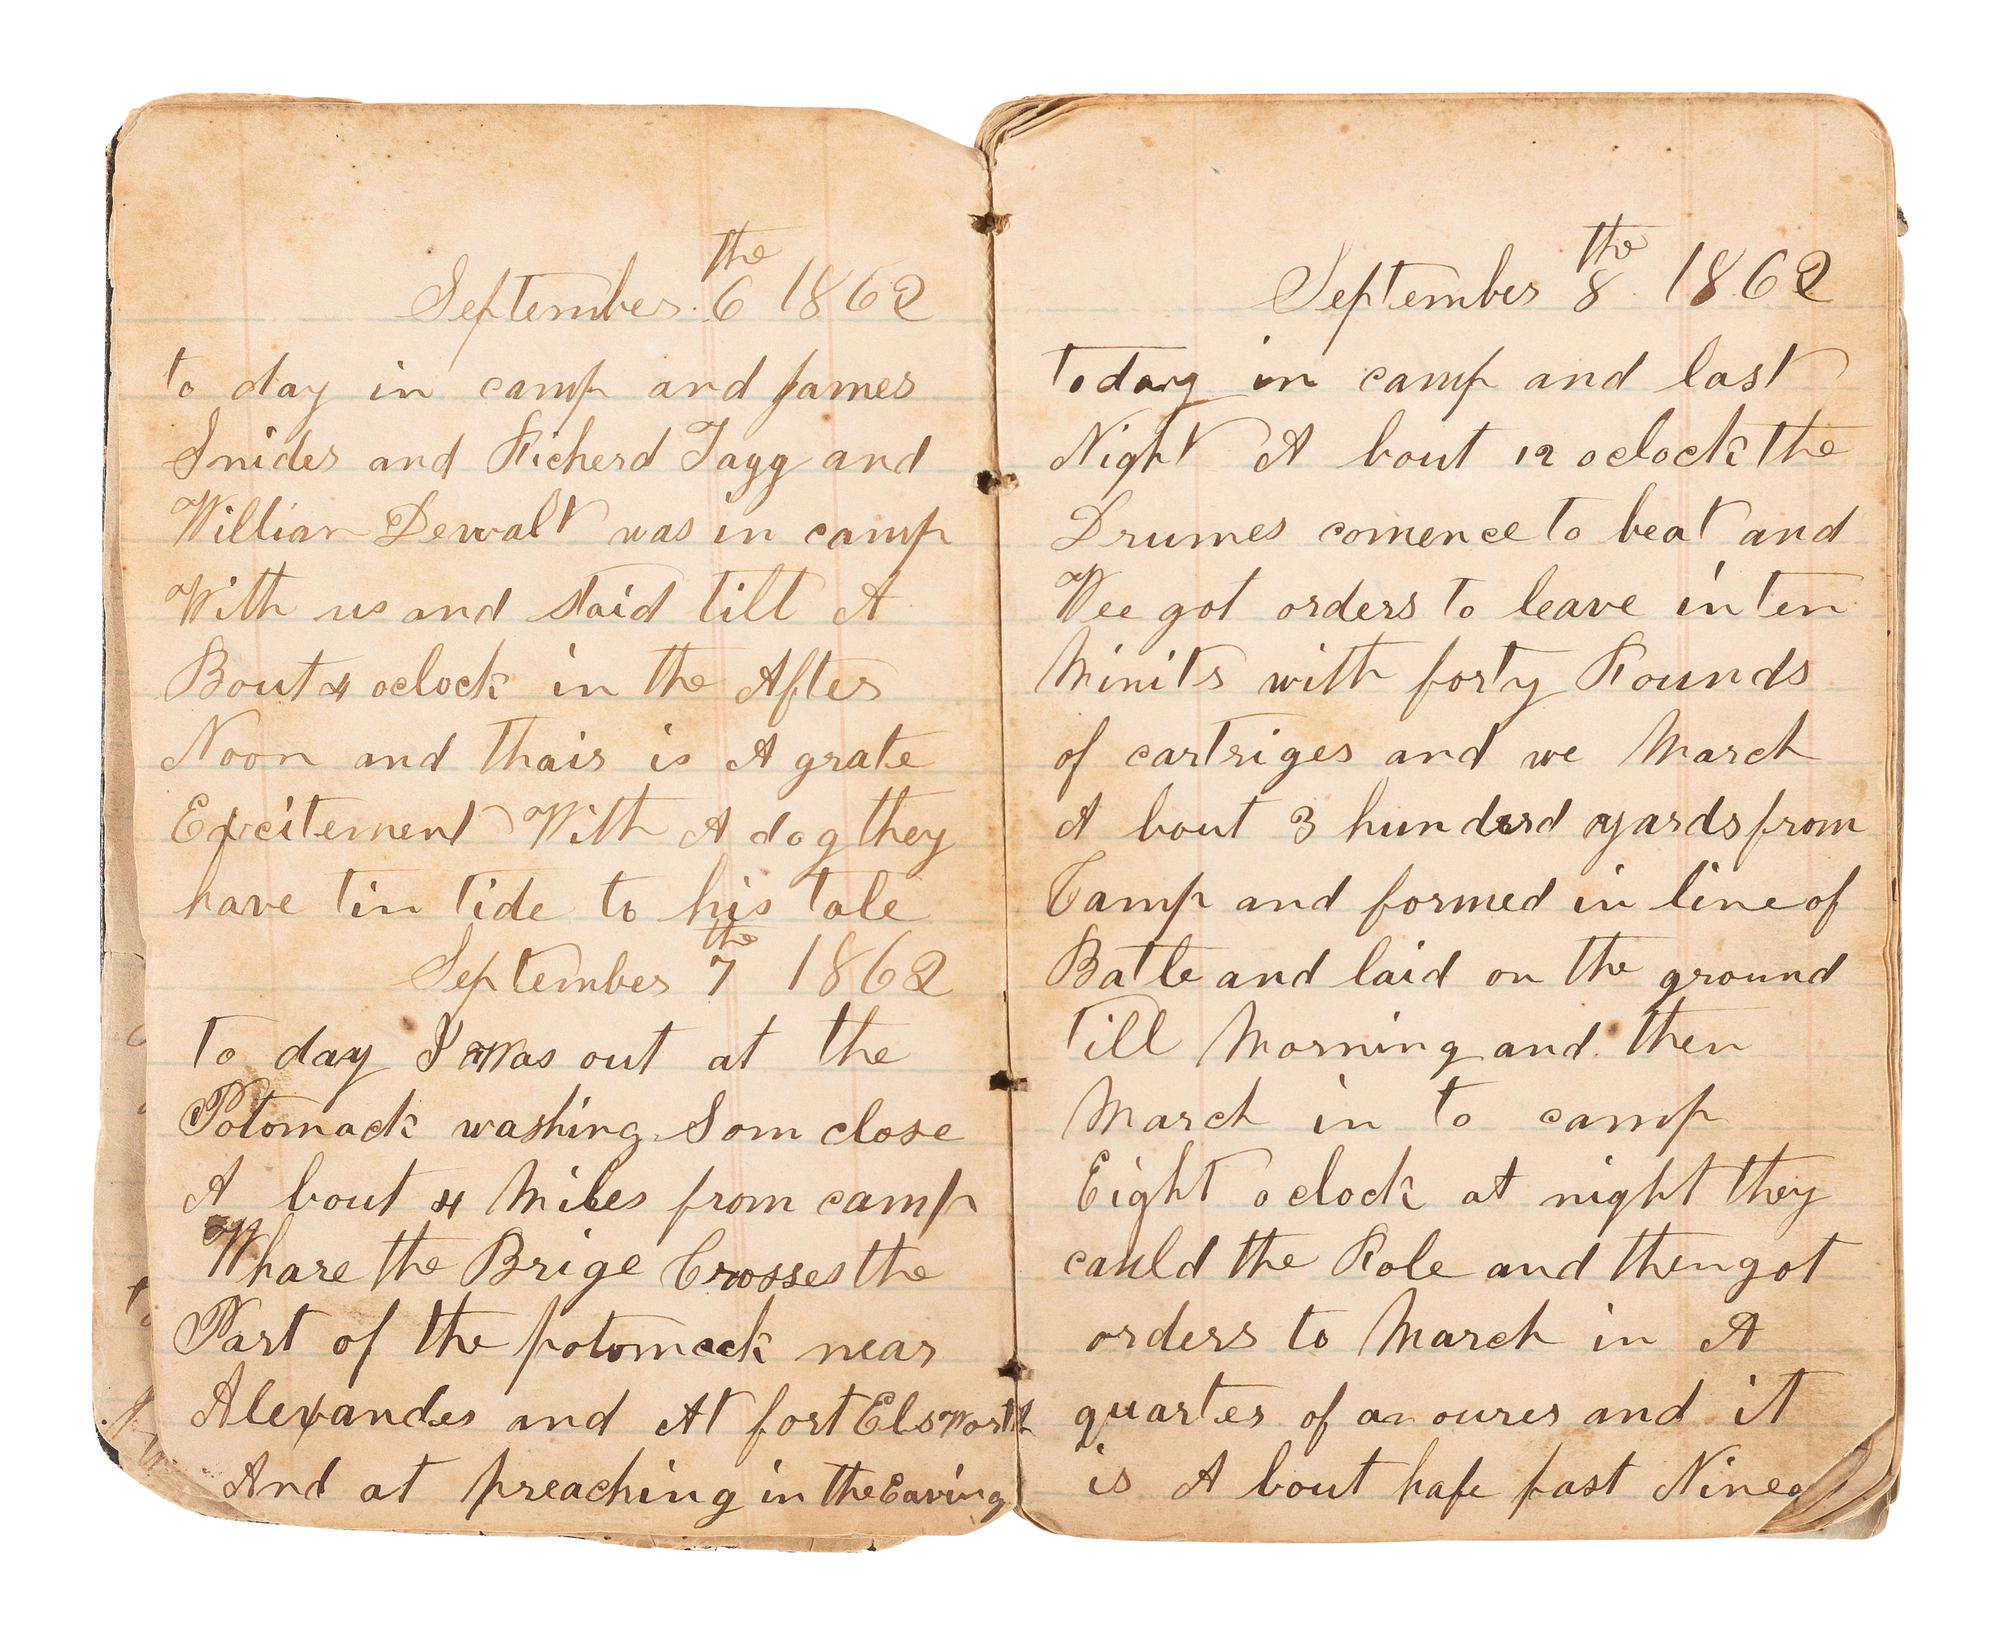 September 6the 1862
to day in camp and James
Snider and Richerd Tagg and
William Dewalt was in camp
With us and staid till A
Bout 4 oclock in the After
Noon and thair is A grate
Excitement With A dog they
have tin tide to his tale
September 7the 1862
to day I Was out at the
Potomack washing Som close
A bout 4 Miles from camp
Whare the Brige Crosses the
Part of the potomack near
Alexander and At fort Elsworth
And at preaching in the Eaving
September 8the 1862
today in camp and last
Night A bout 12 oclock the
Drumes comence to beat and
Wee got orders to leave in ten
Minits with forty Rounds
of cartriges and we March
A bout 3 hunderd yards from
Camp and formed in line of
Batle and laid on the ground
till Morning and then
March in to camp
Eight oclock at night they
cauld the Role and then got
orders to March in A
quarter of an ourer and it
is A bout hafe past Nine